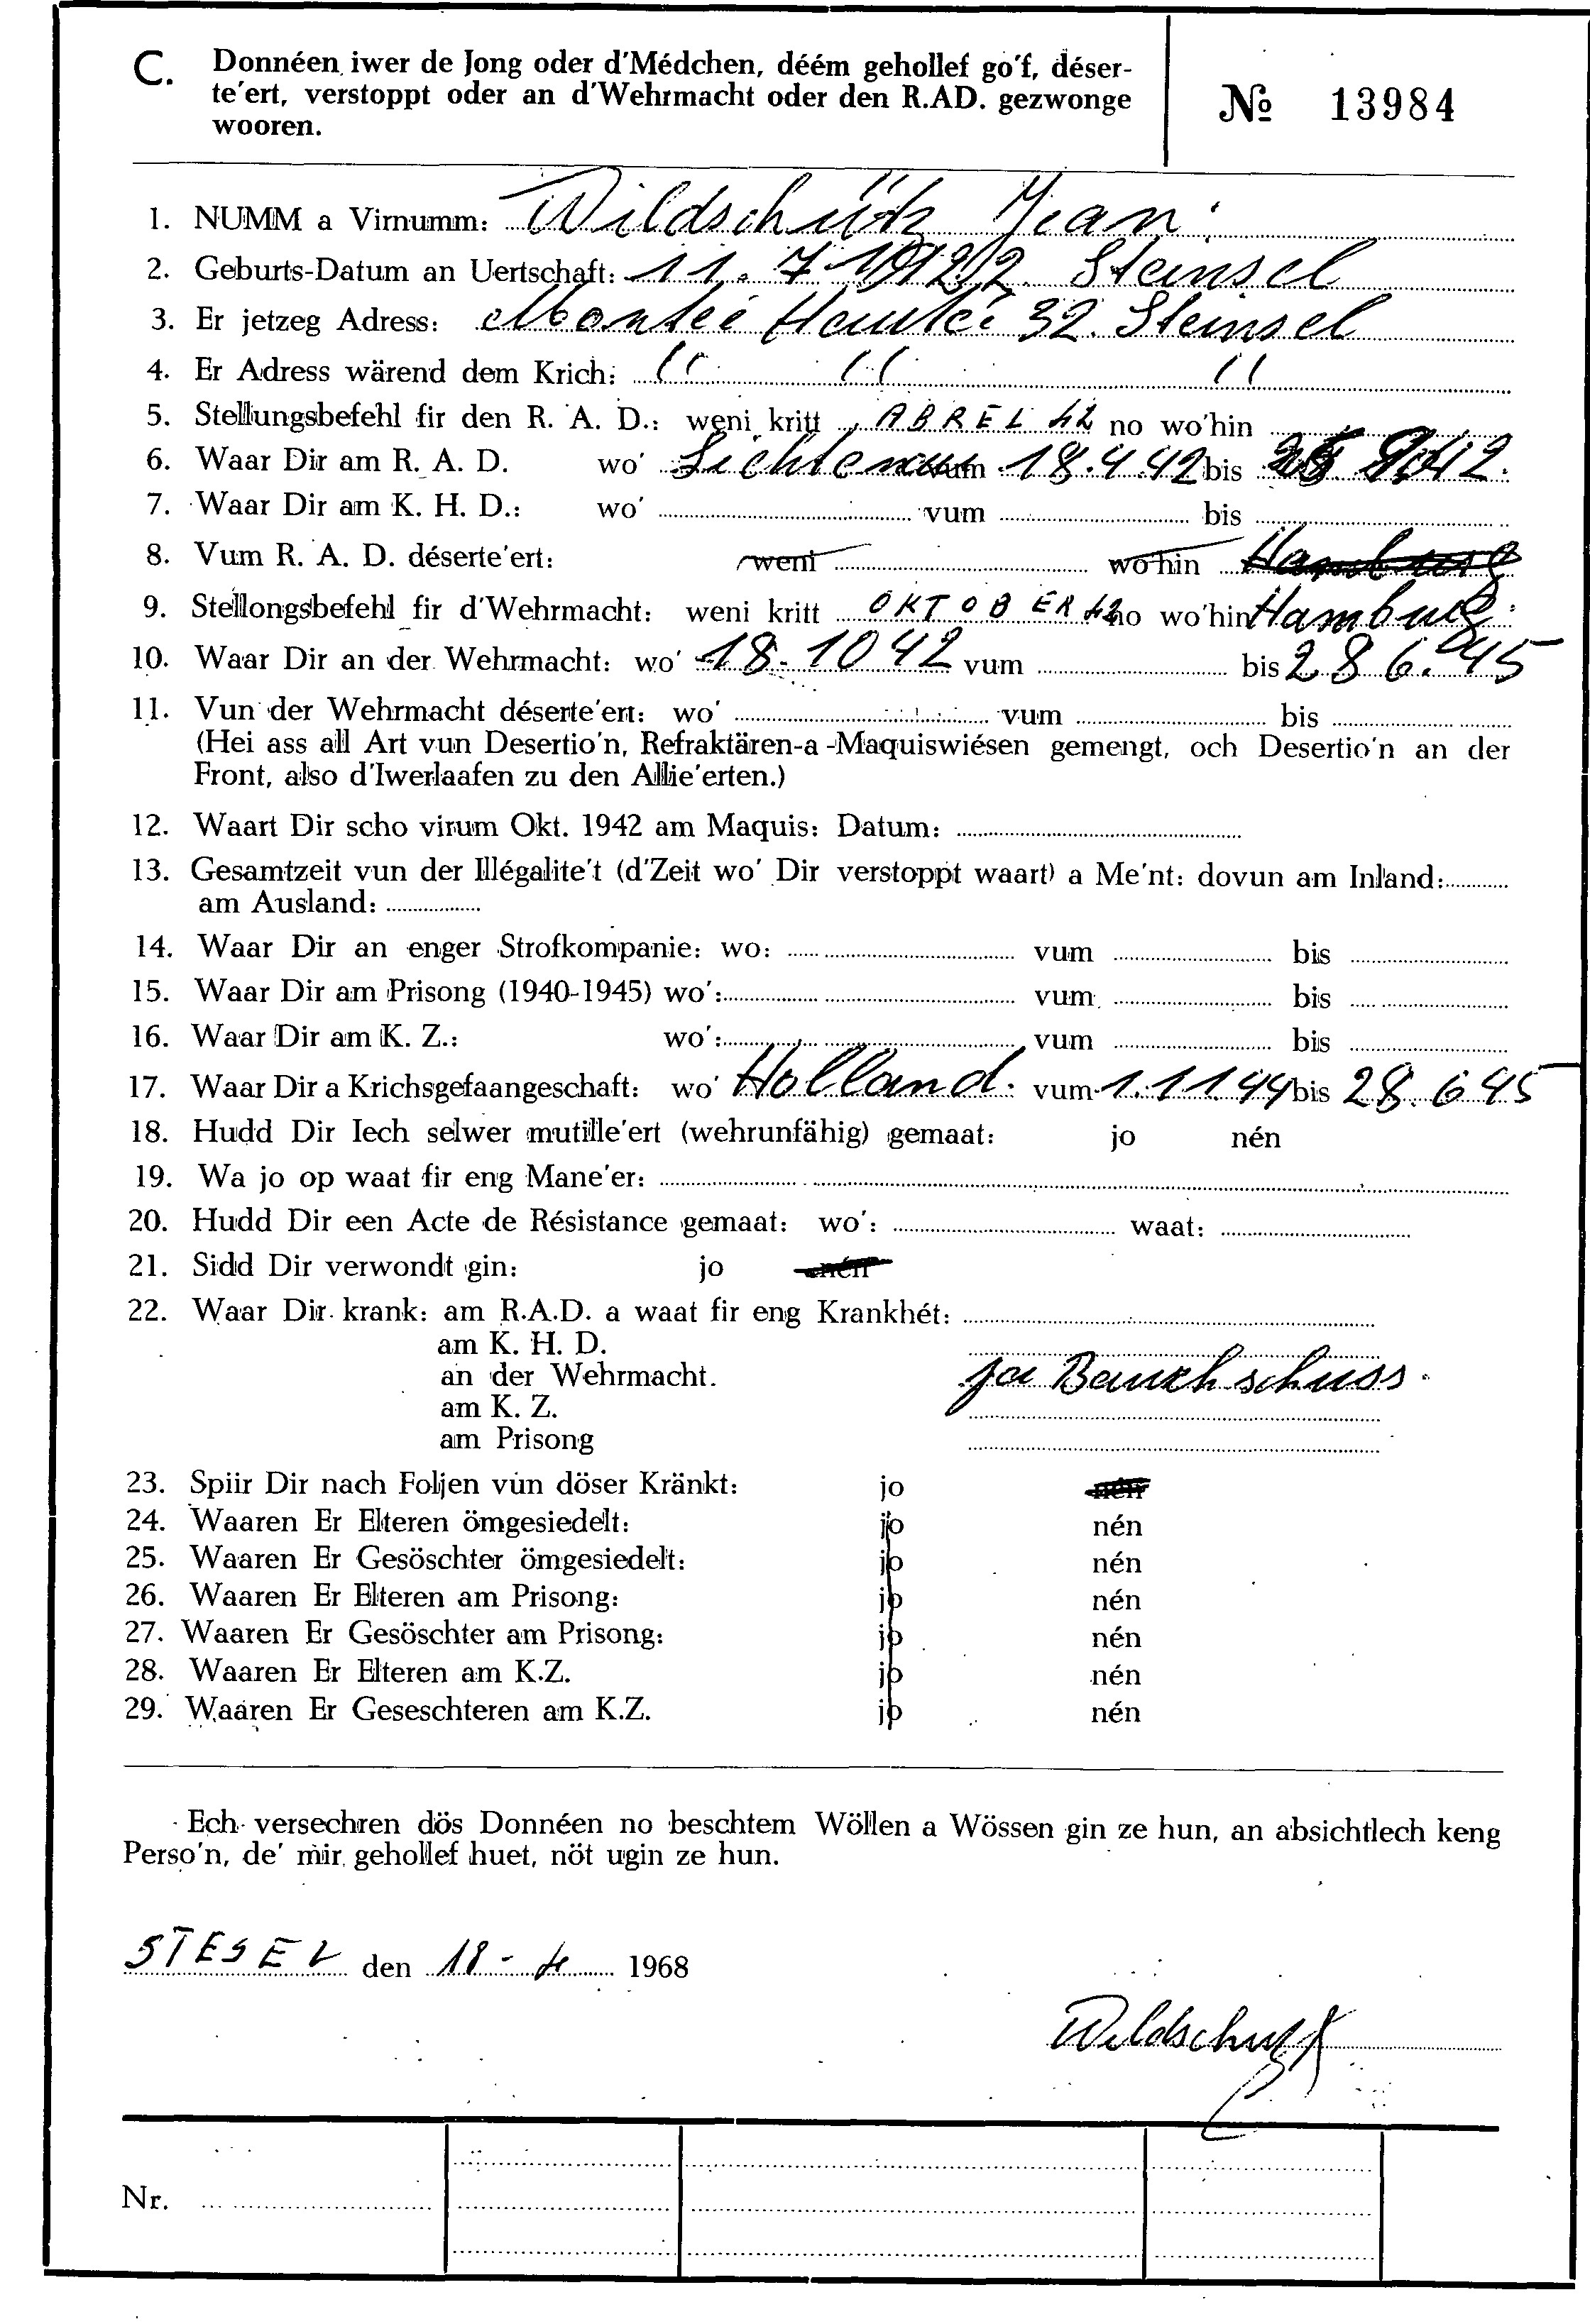 C. Donnéen iwer de Jong oder d'Médchen, déém gehollef go'f, déser-
te'ert, verstoppt oder an d'Wehrmacht oder den R.AD. gezwonge
wooren.
№ 13984
1. NUMM a Virnumm: Wildschütz Jean
2. Geburts-Datum an Uertschaft: 11. 7 1922. Steinsel
3. Er jetzeg Adress: Montée Haute 32. Steinsel
4. Er Adress wärend dem Krich: " " "
5. Stellungsbefehl fir den R. A. D.: weni kritt ABREL 42 no wo'hin
6. Waar Dir am R. A. D. wo' Lichtenau vum 18.4.42 bis 42.
7. Waar Dir am K. H. D.: wo' vum bis
8. Vum R. A. D. déserte'ert: weni wo'hin Hamburg
9. Stellongsbefehl fir d'Wehrmacht: weni kritt OKTOBER 42 no wo'hin Hamburg
10. Waar Dir an der Wehrmacht: wo' 18. 10 42 vum bis 28 6. 45
11. Vun der Wehrmacht déserte'ert: wo' vum bis
(Hei ass all Art vun Desertio'n, Refraktären-a-Maquiswiésen gemengt, och Desertio'n an der
Front, also d'Iwerlaafen zu den Allie'erten.)
12. Waart Dir scho virum Okt. 1942 am Maquis: Datum:
13. Gesamtzeit vun der Illégalite't (d'Zeit wo' Dir verstoppt waart) a Me'nt: dovun am Inland:
am Ausland:
14. Waar Dir an enger Strofkompanie: wo: vum bis
15. Waar Dir am Prisong (1940-1945) wo': vum bis
16. Waar Dir am K. Z.: wo': vum bis
17. Waar Dir a Krichsgefaangeschaft: wo' Holland. vum 1.11.44 bis 28.6 45
18. Hudd Dir Iech selwer mutille'ert (wehrunfähig) gemaat: jo nén
19. Wa jo op waat fir eng Mane'er:
20. Hudd Dir een Acte de Résistance gemaat: wo': waat:
21. Sidd Dir verwondt gin: jo nén
22. Waar Dir krank: am R.A.D. a waat fir eng Krankhét:
am K. H. D.
an der Wehrmacht. ja Bauchschuss.
am K. Z.
am Prisong
23. Spiir Dir nach Foljen vun döser Kränkt: jo nén
24. Waaren Er Elteren ömgesiedelt: jo nén
25. Waaren Er Gesöschter ömgesiedelt: jo nén
26. Waaren Er Elteren am Prisong: jo nén
27. Waaren Er Gesöschter am Prisong: jo nén
28. Waaren Er Elteren am K.Z. jo nén
29. Waaren Er Geseschteren am K.Z. jo nén
Ech versechren dös Donnéen no beschtem Wöllen a Wössen gin ze hun, an absichtlech keng
Perso'n, de' mir gehollef huet, nöt ugin ze hun.
STESEL den 18 - 4 1968
Wildschutz
Nr.